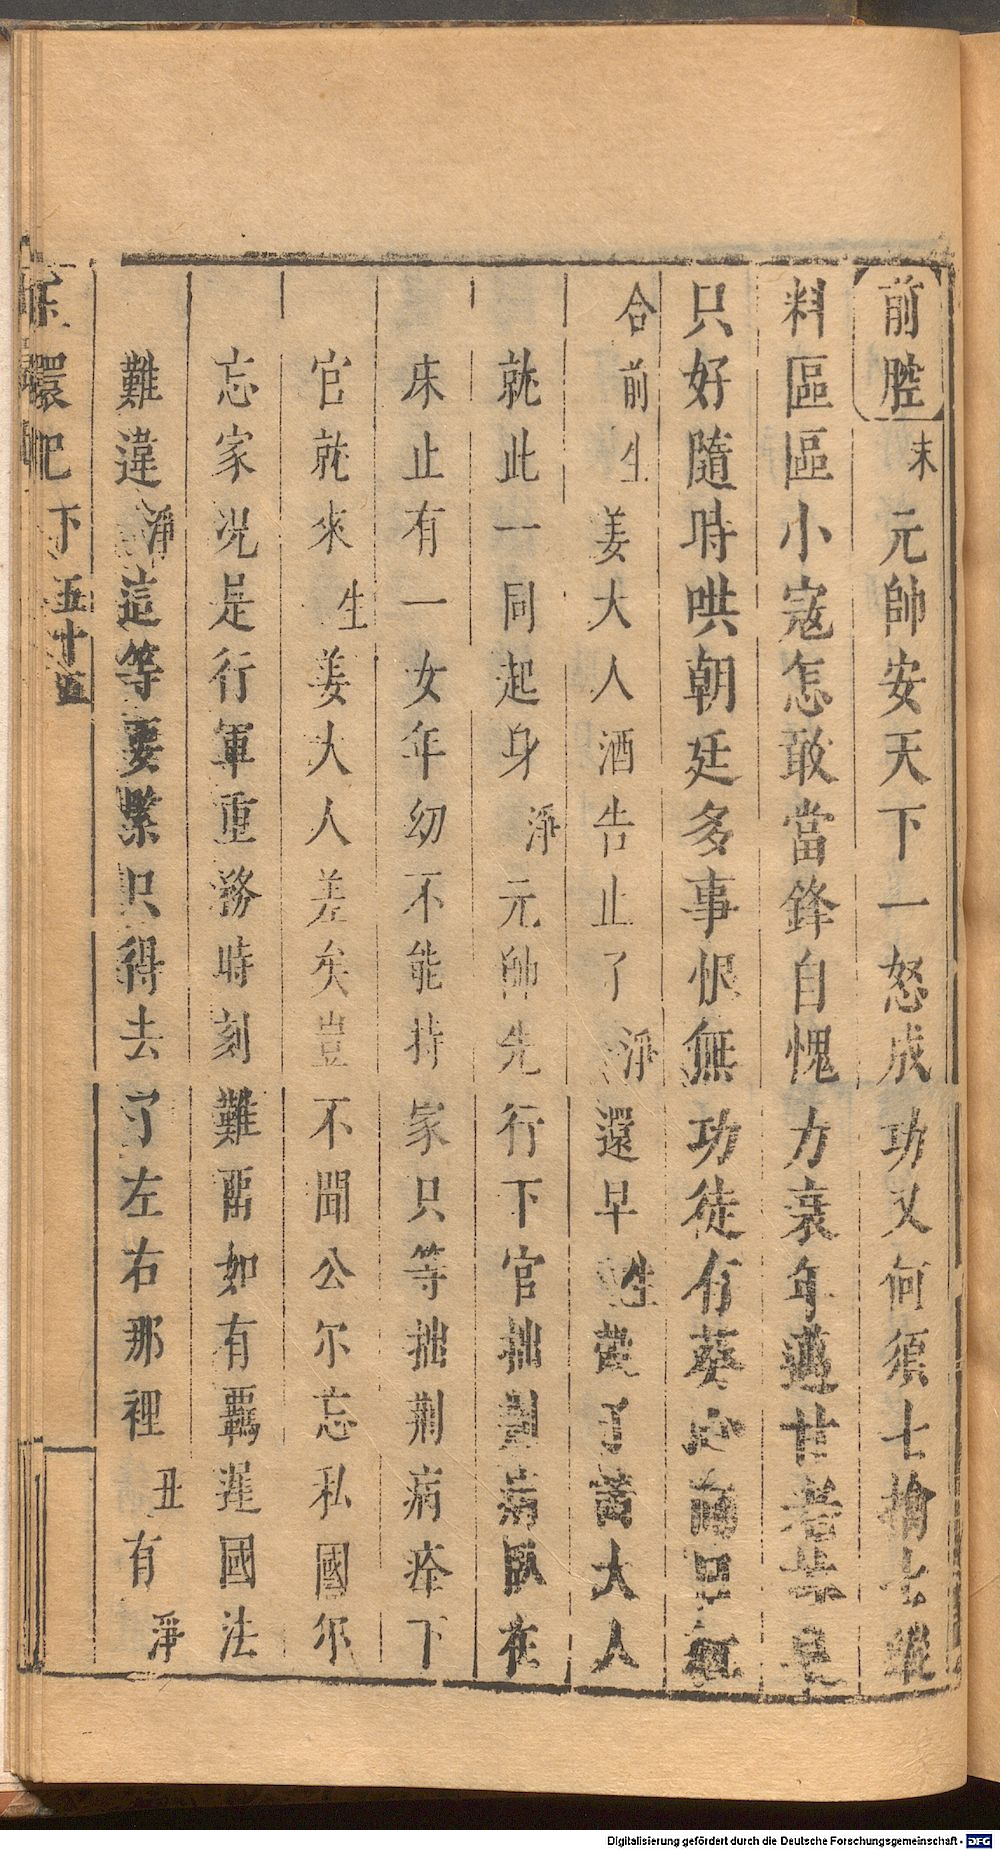 前腔 末 元帥安天下一怒成功又何須士擒士縱
料區區小寇怎敢當鋒自愧力衰年邁甘老
只好隨時哄朝廷多事恨無功徒有葵心
合前 生 姜大人酒告止了 淨 還早 生 蕭大人
就此一同起身 淨 元帥先行下官拙荆病臥在
床止有一女年幼不能持家只等拙荆病痊下
官就來 生 姜大人差矣豈不聞公尔忘私國尔
忘家况是行軍重務時刻難留如有羈遲國法
難違 淨 這等要緊只得去了左右那裡 丑 有 淨
環記 下 五十五
Digitalisierung gefördert durch die Deutsche Forschungsgemeinschaft - DFG